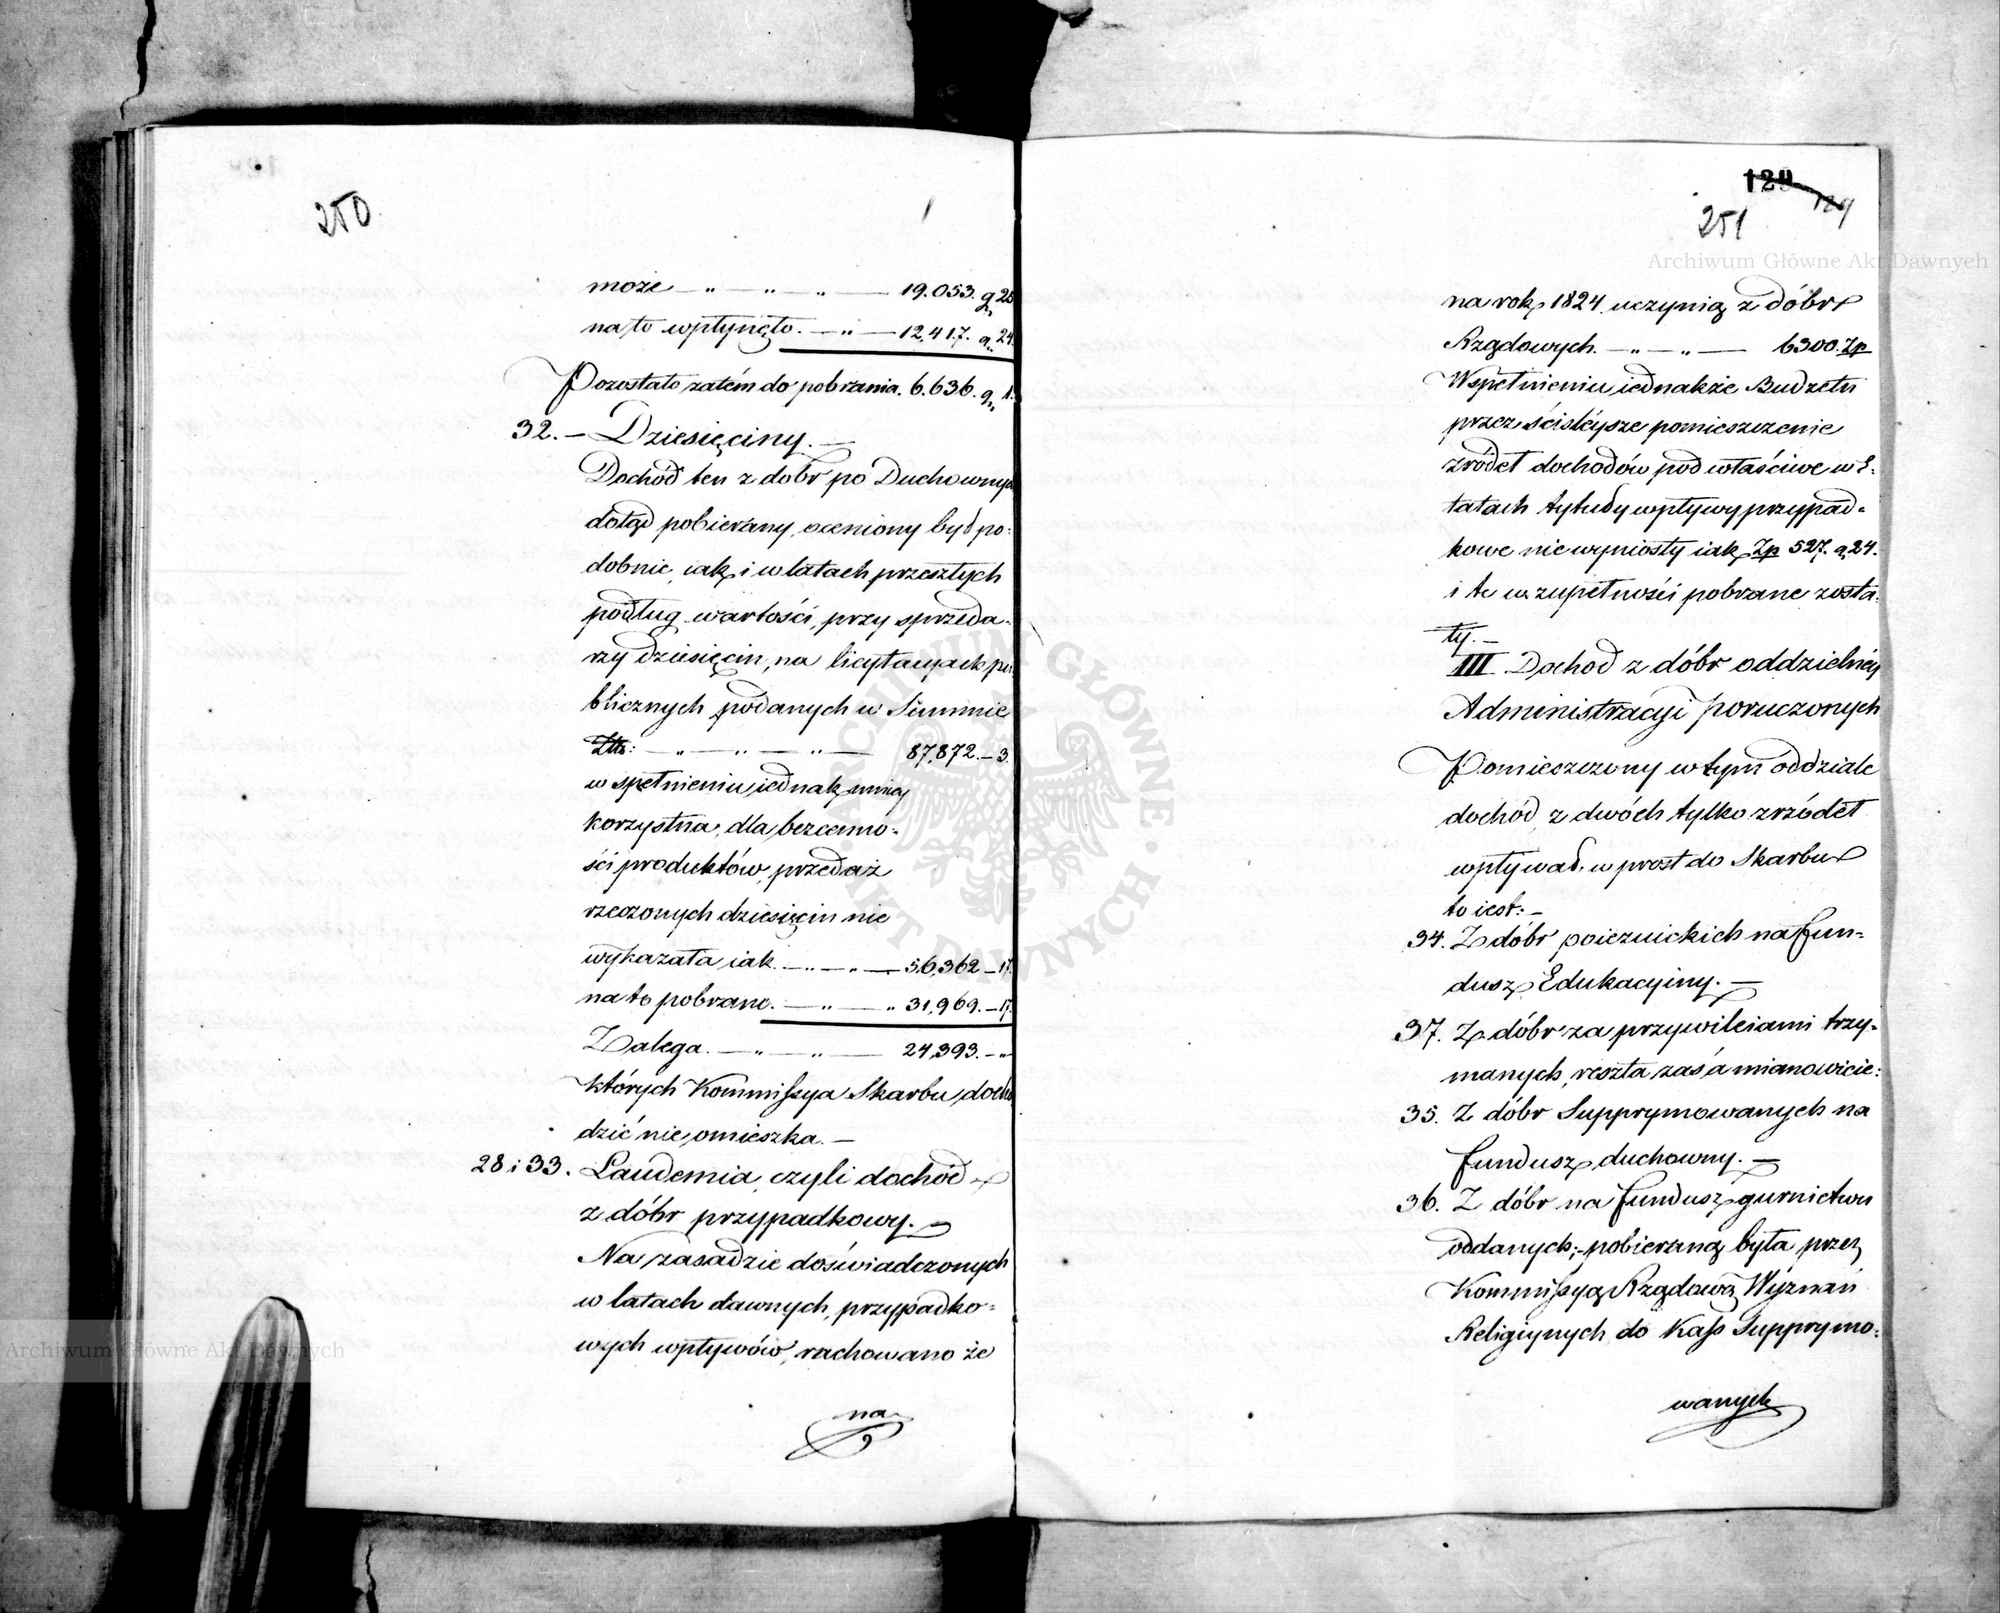 250
może — „ — „ — „ — 19.053. g 25
na to wpłynęło. — „ — 12,417. g. 24.
Pozostało zatém do pobrania. 6.636. g. 1.
32. — Dziesięciny. —
Dochód ten z dobr po Duchownych
dotąd pobierany, oceniony był po-
dobnie, iak i w latach przeszłych
podług wartości, przy sprzeda-
rzy dziesięcin, na licytacyach pu-
blicznych podanych w Summie
Złtł: — „ — „ — „ — 87,872. — 3.
w spełnieniu iednak mniey
korzystna, dla bezcenno-
ści produktów, przedaż
rzeczonych dziesięcin nie
wykazała iak. — „ — „ — 56,362 — 17.
na to pobrano. — „ — „ 31,969. — 17.
Zalega. — „ — „ — 24,393. — „
których Kommissya Skarbu docho
dzić nie omieszka. —
28 i 33. Laudemia, czyli dochód
z dóbr przypadkowy. —
Na zasadzie doświadczonych
w latach dawnych, przypadko-
wych wpływów, rachowano że
na
129
129
251
na rok 1824. uczynią z dóbr
Rządowych. — „ — „ — 6300. Zp
W spełnieniu iednakże Budzetu
przez ściśleysze pomieszczenie
zrodeł dochodów pod właściwe w E-
tatach tytuły wpływy przypad-
kowe nie wyniosły iak Zp 527. g 24.
i te w zupełności pobrane zosta-
ły. —
III Dochod z dóbr oddzielnéy
Administracyi poruczonych
Pomieszczony w tym oddziale
dochód, z dwóch tylko zrzódeł
wpływał, w prost do Skarbu
to iest: —
34. Z dóbr poiezuickich na fun-
dusz Edukacyiny. —
37. Z dóbr za przywileiami trzy-
manych, reszta zaś a mianowicie:
35. Z dóbr Supprymowanych na
fundusz duchowny. —
36. Z dóbr na fundusz gurnictwu
oddanych; pobieraną była przez
Kommissyą Rządową Wyznań
Religiynych do Kass Supprymo-
wanych
Archiwum Główne Akt Dawnych
Archiwum Główne Akt Dawnych
ARCHIWUM GŁÓWNE · AKT DAWNYCH ·